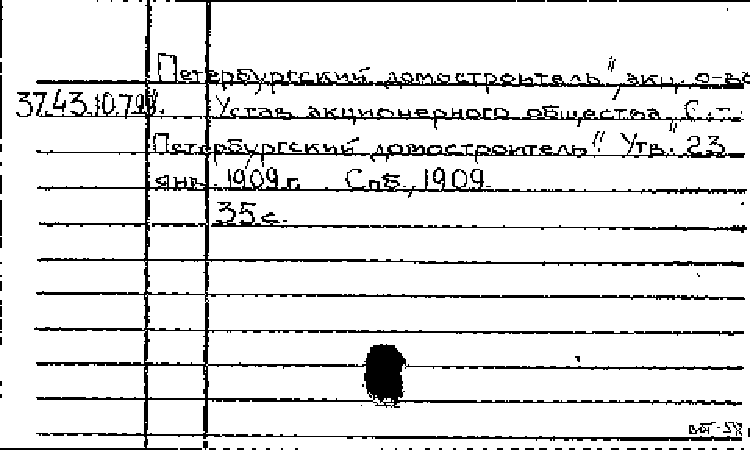 Петербургский домостроитель", акц. о-во
37.43.10.79
Устав акционерного общества „С.
Петербургский домостроитель". Утв. 23
янв. 1909 г. Спб., 1909.
35 с.